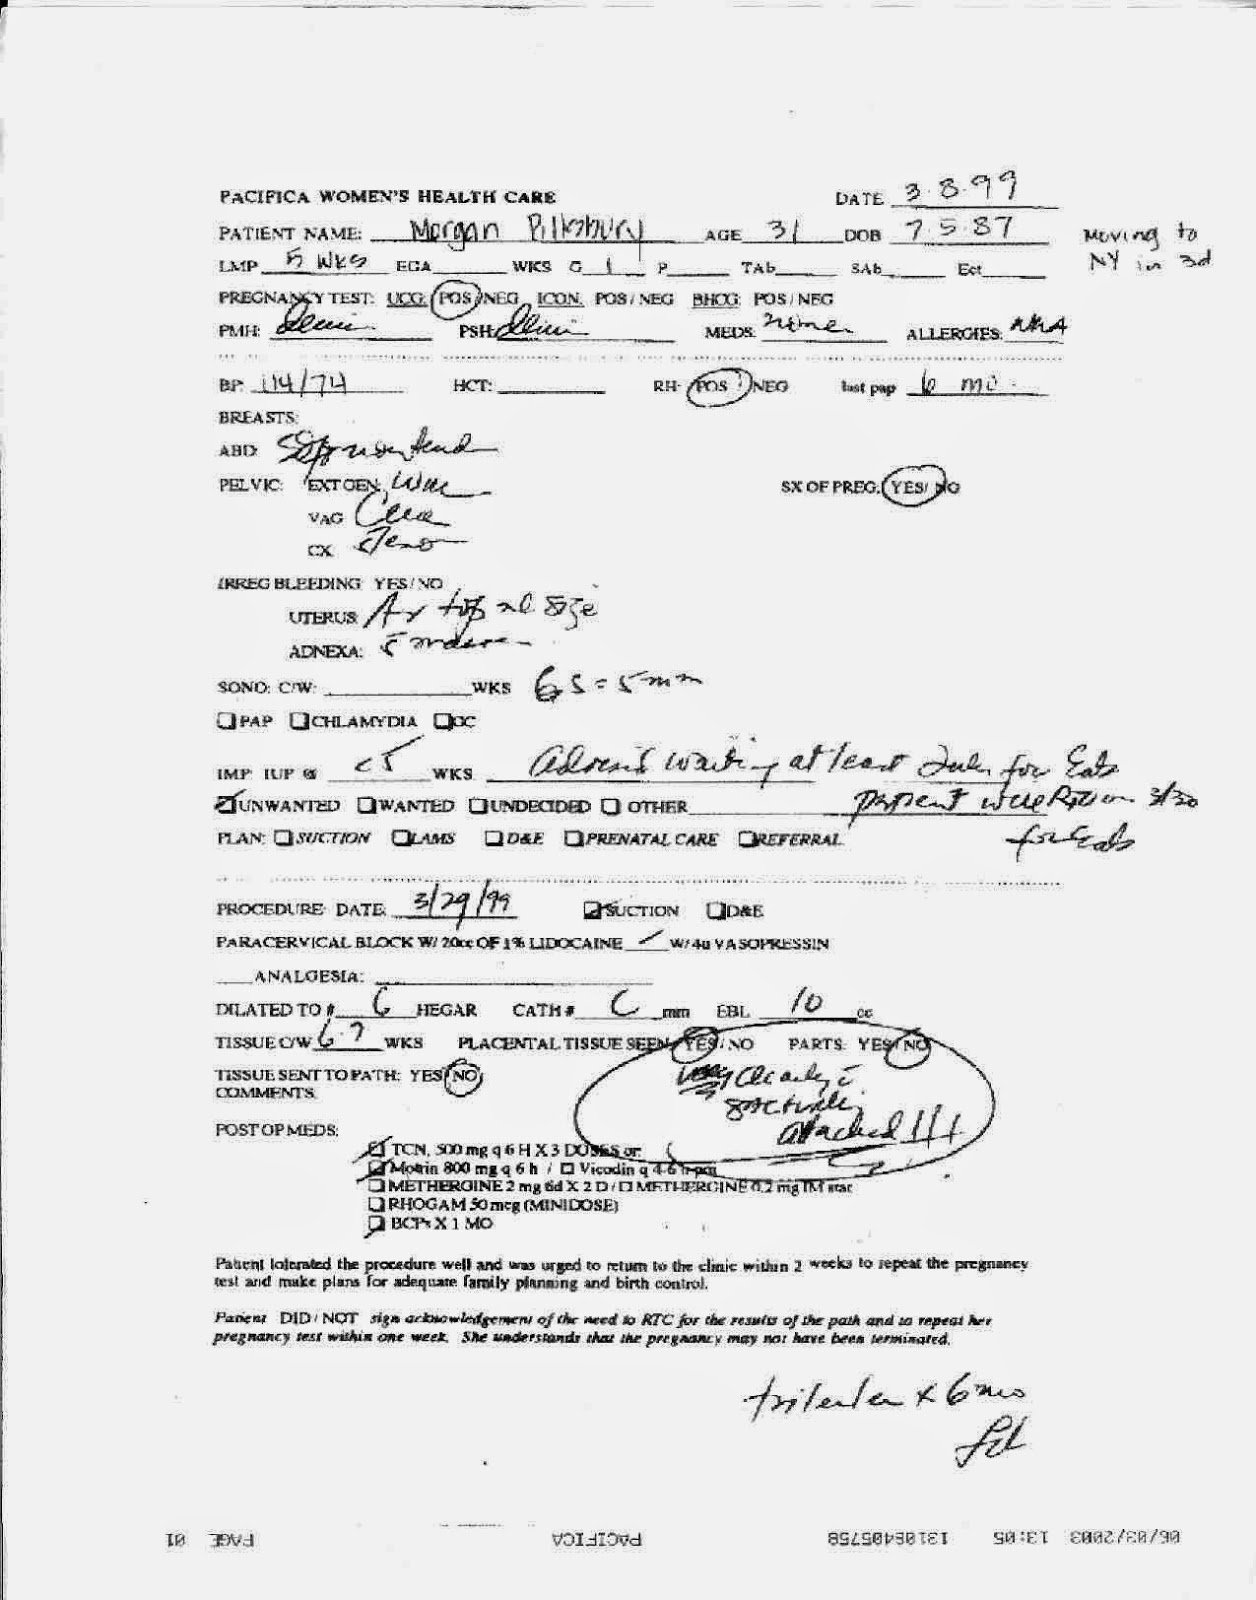 PACIFICA WOMEN'S HEALTH CARE DATE 3.8.99
PATIENT NAME: Morgan Pillsbury AGE 31 DOB 7 5 87 Moving to
LMP 5 WKS EGA WKS G 1 P TAb SAb Ect NY in 3d
PREGNANCY TEST: UCG: POS/NEG ICON: POS/NEG BHCG: POS/NEG
PMH: PSH: MEDS: none ALLERGIES: NKA
BP: 114/74 HCT: RH: POS / NEG last pap 6 mo.
BREASTS:
ABD:
PELVIC: EXT GEN, SX OF PREG: YES/ NO
VAG
CX
IRREG BLEEDING: YES/NO
UTERUS: size
ADNEXA:
SONO: C/W: WKS GS = 5mm
PAP CHLAMYDIA GC
IMP: IUP @ <5 WKS waiting at least for
UNWANTED WANTED UNDECIDED OTHER patient will 3/30
PLAN: SUCTION LAMS D&E PRENATAL CARE REFERRAL for
PROCEDURE DATE: 3/29/99 SUCTION D&E
PARACERVICAL BLOCK W/ 20cc OF 1% LIDOCAINE W/ 4u VASOPRESSIN
ANALGESIA:
DILATED TO # 6 HEGAR CATH # mm EBL 10 cc
TISSUE C/W WKS PLACENTAL TISSUE SEEN YES/NO PARTS: YES/NO
TISSUE SENT TO PATH: YES/NO very clearly c̄
COMMENTS:
attached!!!
POST OP MEDS:
TCN, 500 mg q 6 H X 3 DOSES or
Motrin 800 mg q 6 h / Vicodin q 4-6 h prn
METHERGINE 2 mg 6d X 2 D / METHERGINE 0.2 mg IM stat
RHOGAM 50 mcg (MINIDOSE)
BCPs X 1 MO
Patient tolerated the procedure well and was urged to return to the clinic within 2 weeks to repeat the pregnancy
test and make plans for adequate family planning and birth control.
Patient DID / NOT sign acknowledgement of the need to RTC for the results of the path and to repeat her
pregnancy test within one week. She understands that the pregnancy may not have been terminated.
x 6 mo
06/03/2003 13:05 13106405758 PACIFICA PAGE 01